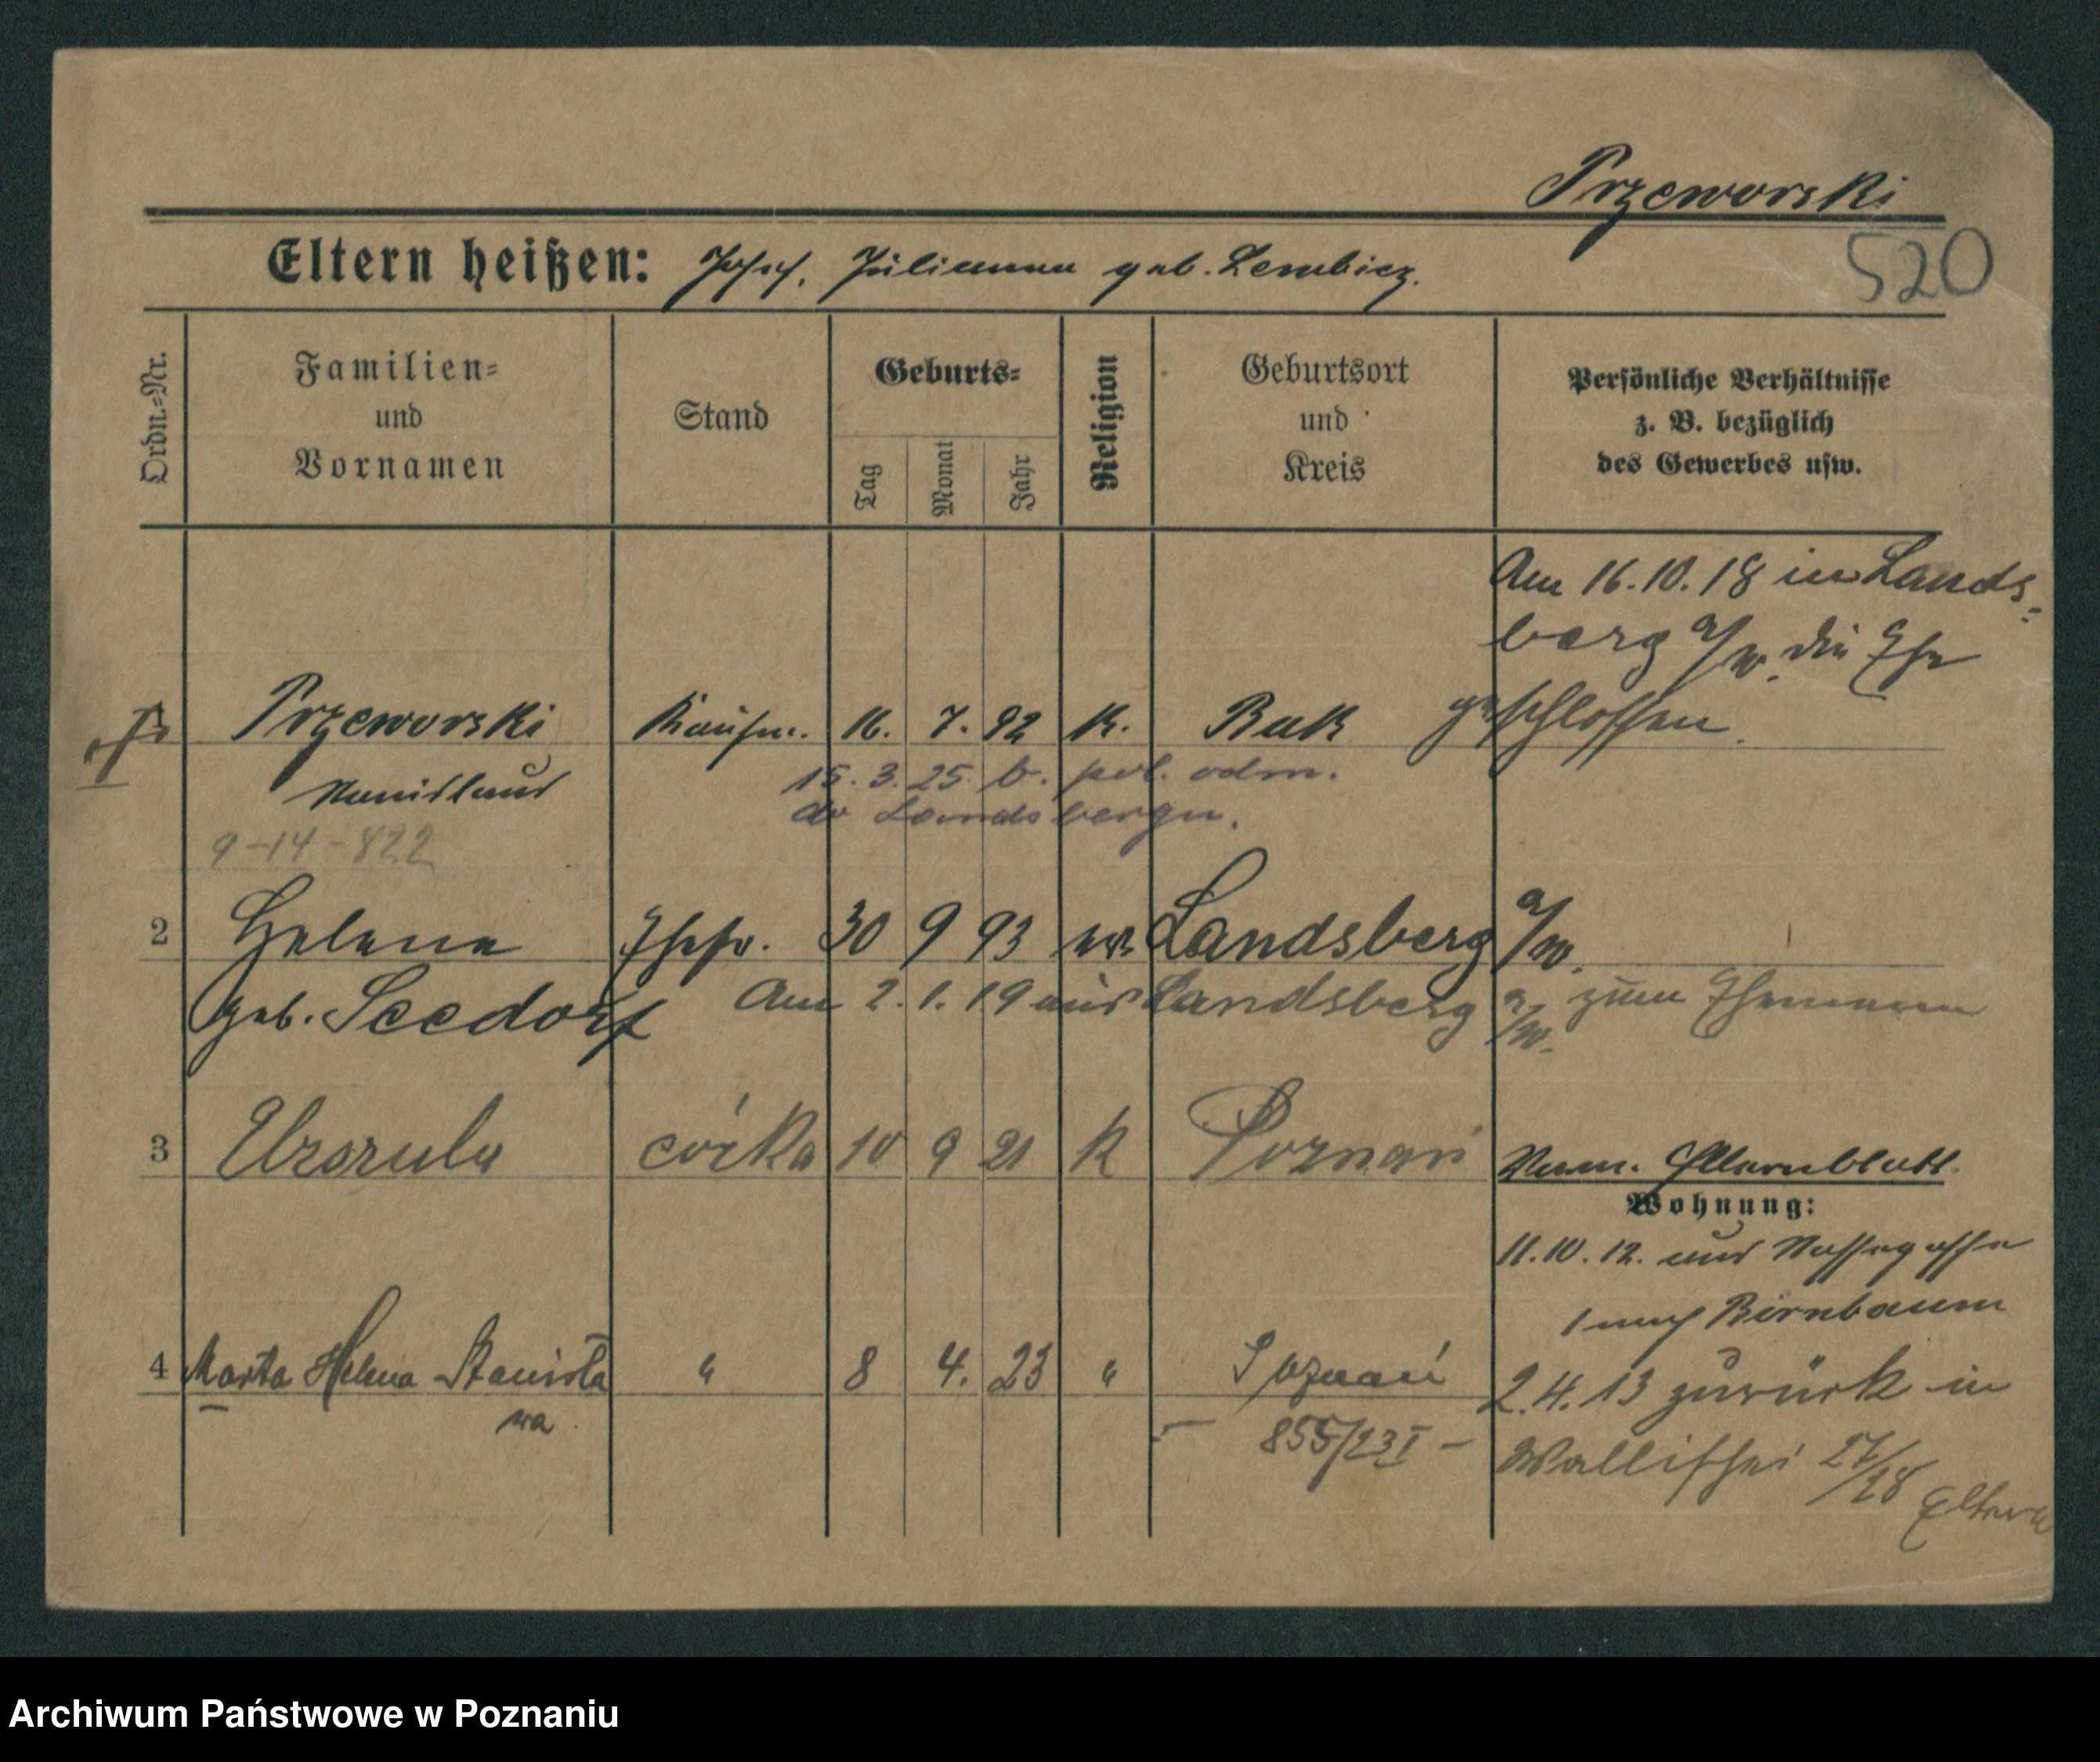 Przeworski
Eltern heißen: Josef, Julianna geb. Lembicz.
520
Ordn.-Nr.
Familien-
und
Vornamen
Stand
Geburts-
Tag
Monat
Jahr
Religion
Geburtsort
und
Kreis
Persönliche Verhältnisse
z. B. bezüglich
des Gewerbes usw.
Am 16.10.18 in Lands-
berg a/W. die Ehe
geschlossen.
1 Przeworski Kaufm. 16. 7. 92 K. Buk
Stanislaus
15. 3. 25 b. pol. odm.
do Landsbergu.
9-14-822
2 Helene Ehefr. 30 9 93 ev. Landsberg a/W.
geb. Seedorf
Am 2. 1. 19 aus Landsberg a/W. zum Ehemann
3 Urszula córka 10 9 21 K Poznań
Elternblatt.
Wohnung:
11.10.12. aus Nassegasse
1 nach Birnbaum
4 Marta Helena Stanisła
wa
" 8 4. 23 " Poznań
- 855/23 I -
2.4.13 zurück in
Wallischei 27/28 Eltern
Archiwum Państwowe w Poznaniu